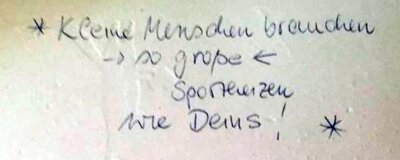 * Kleine Menschen brauchen
→ so große ←
Sportherzen
wie Deins! *